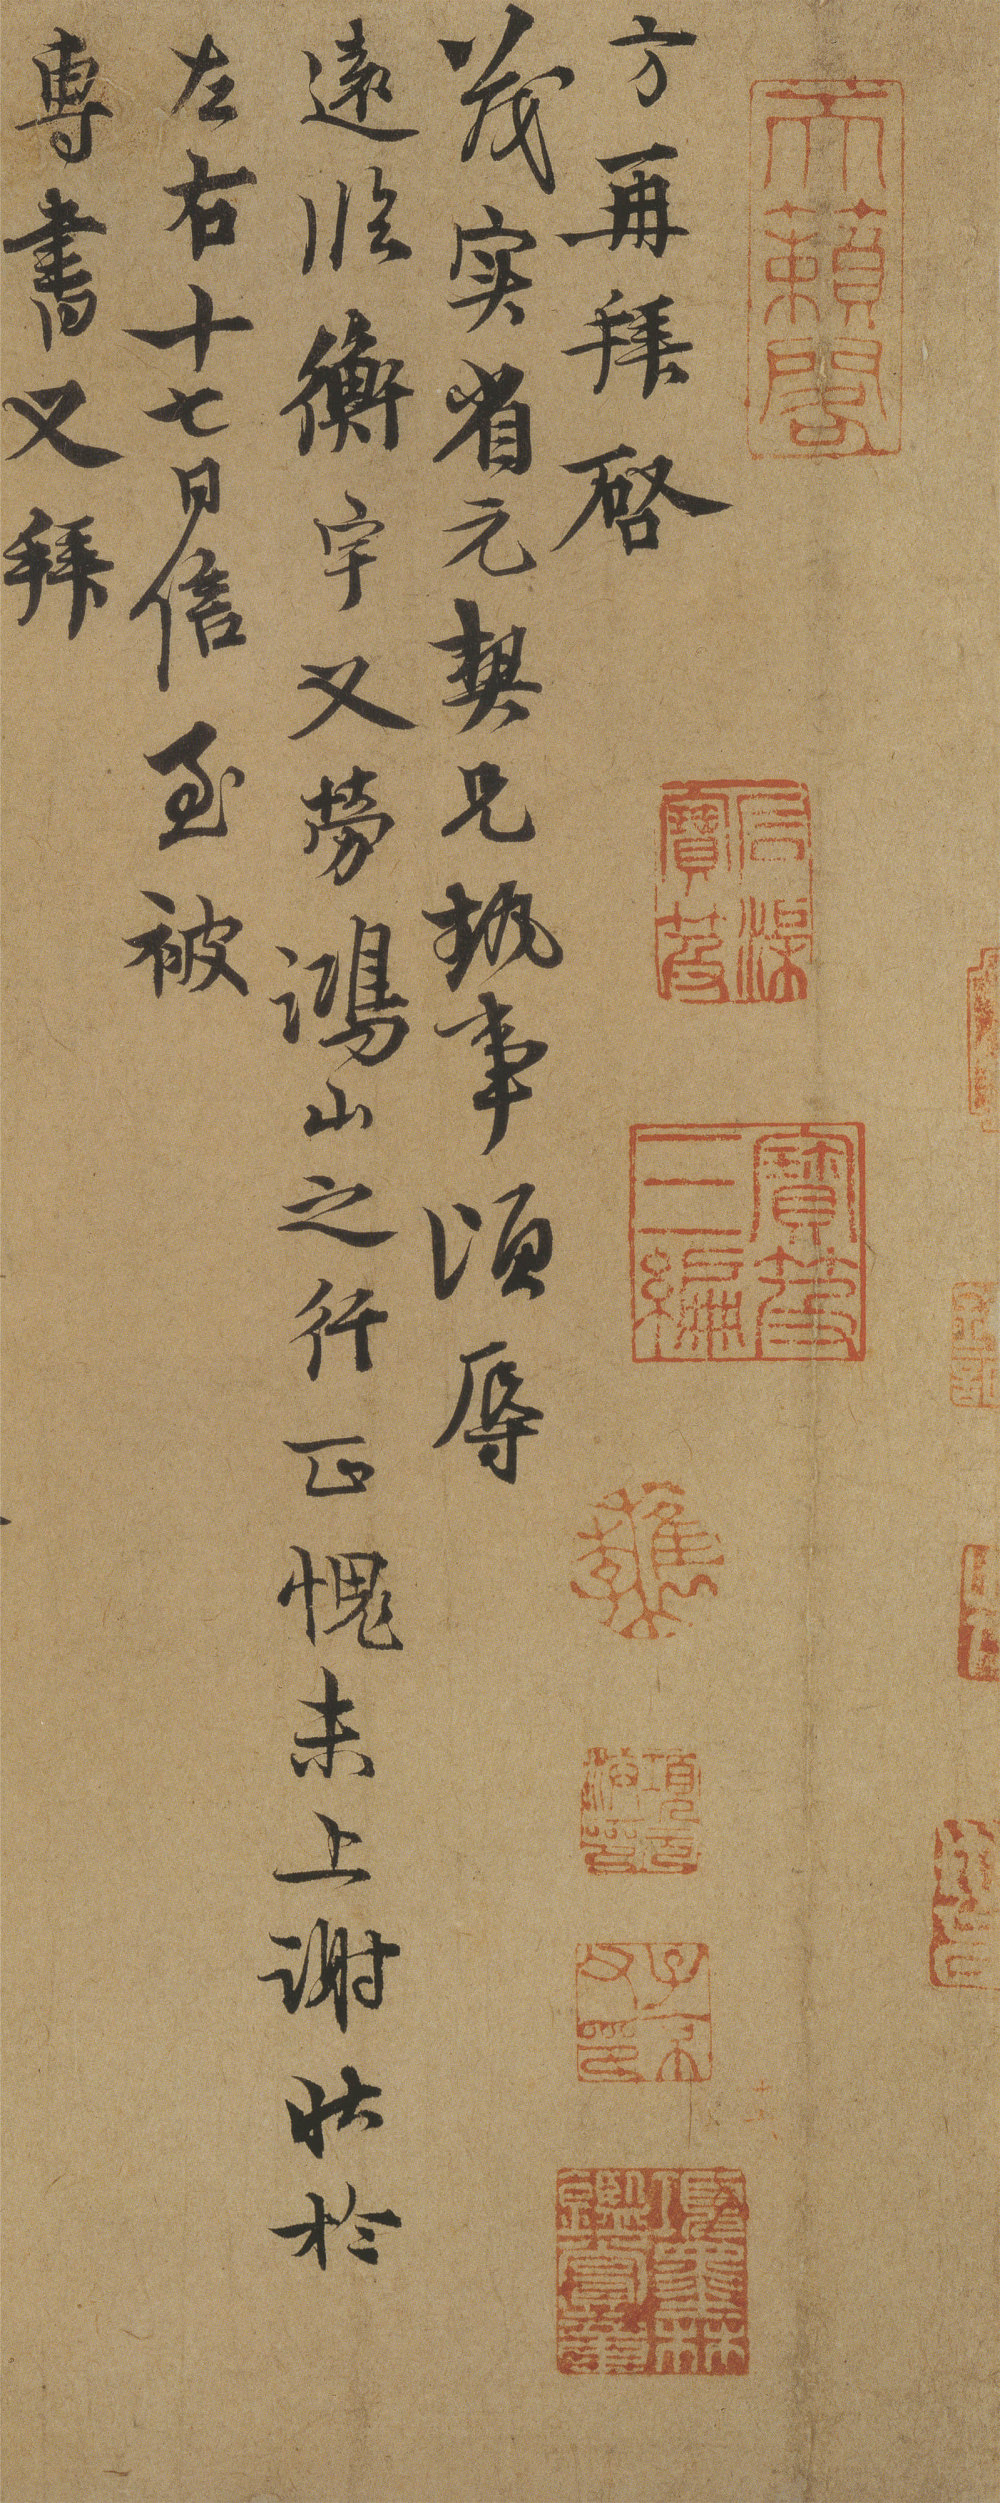 天籟閣
石渠寶笈
寶笈三編
項元汴印
子京父印
項墨林鑑賞章
方再拜啓
茂实省元契兄執事頃辱
遠臨衡宇又勞鴻山之行正愧未上謝狀於
左右十七日信至被
專書又拜